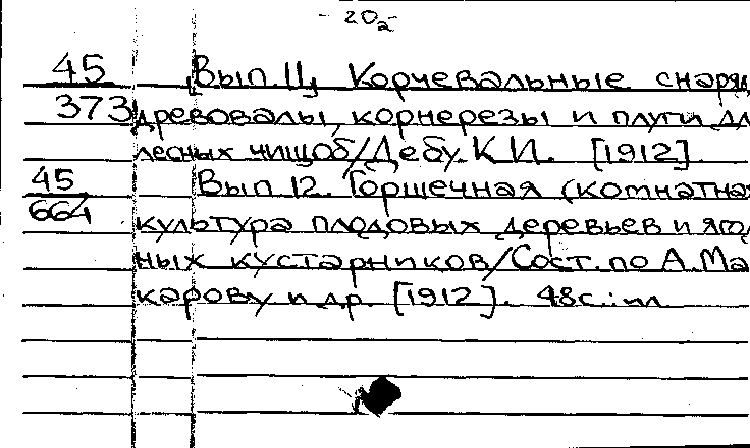 - 20₂ -
45 Вып. 11, Корчевальные снаряд
373 древовалы, корнерезы и плуги дл
лесных чищоб/Дебу К.И. [1912].
45 Вып 12. Горшечная (комнатная
664 культура плодовых деревьев и яго
ных кустарников/Сост. по А. Ма
карову и др. [1912]. 48с.: ил